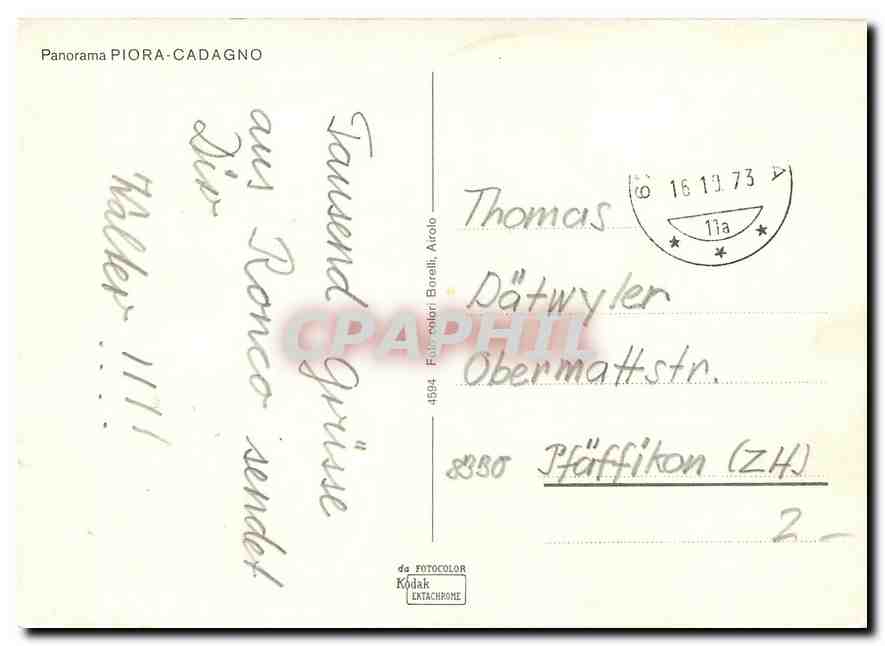 Panorama PIORA-CADAGNO
Tausend Grüsse
aus Ronco sendet
Dir
Walter !!!!
4594 Foto colori Borelli, Airolo
16.10.73
11a
Thomas
Dätwyler
Obermattstr.
8330 Pfäffikon (ZH)
2 –
CPAPHIL
da FOTOCOLOR
Kodak
EKTACHROME